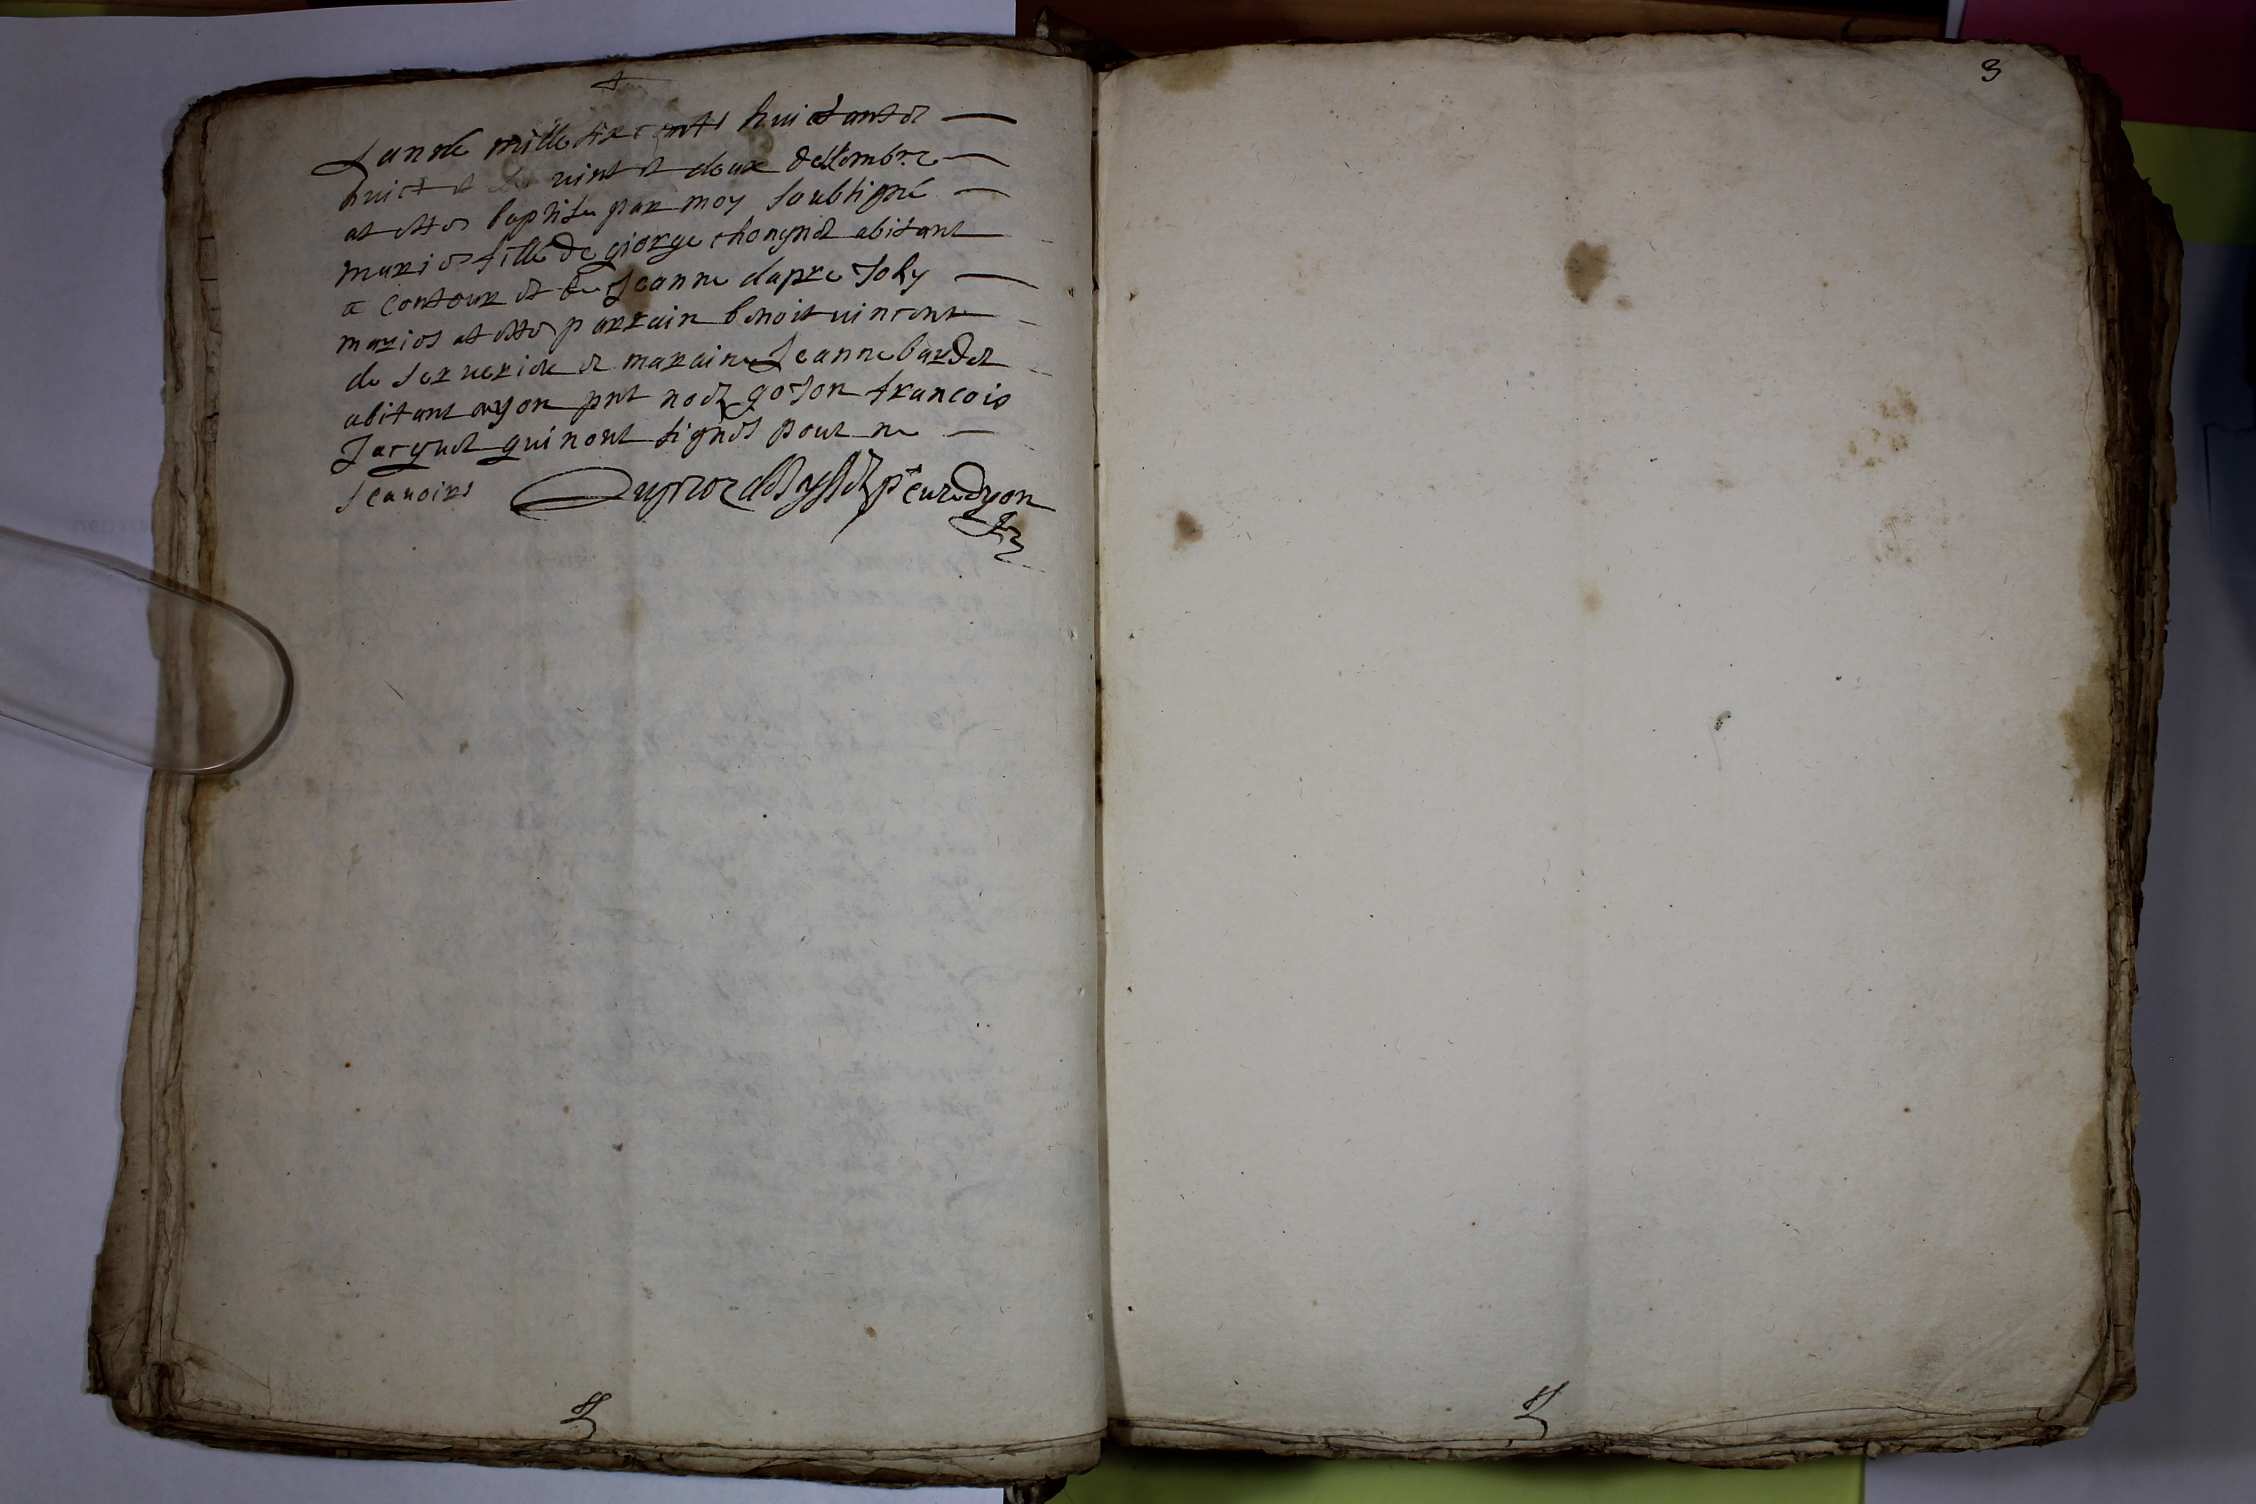 3
Lannée mille six cents huictante
huict et le vint et deux dessembre
at estee baptisee par moy soubsigné
marie fille de giorge chongnet abitant
a contour et de Jeanne dapre Joly
maries at este parrain benoit vincent
de serverie et maraine Jeanne bardet
abitant ayon pnt noel goson francois
Jacquet qui nont signes pour ne
scavoirs
curé dyon